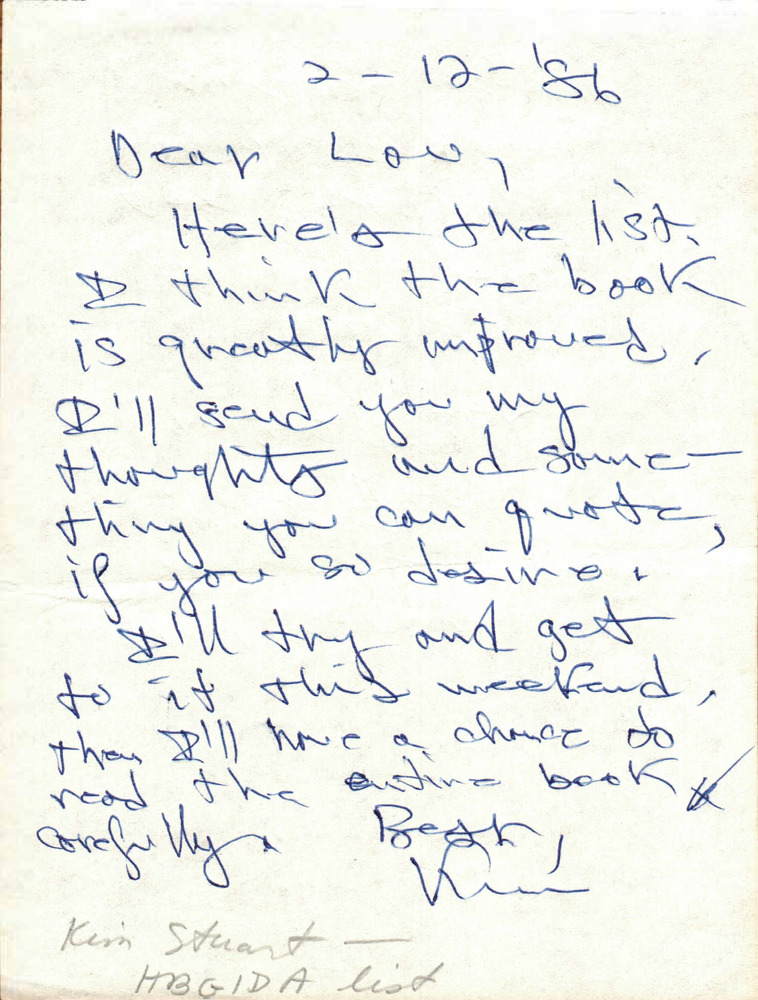 2-12-'86
Dear Lou,
Here's the list.
I think the book
is greatly improved.
I'll send you my
thoughts and some-
thing you can quote,
if you so desire.
I'll try and get
to it this weekend,
then I'll have a chance to
read the entire book
carefully. Best,
Kim
Kim Stuart —
HBGIDA list